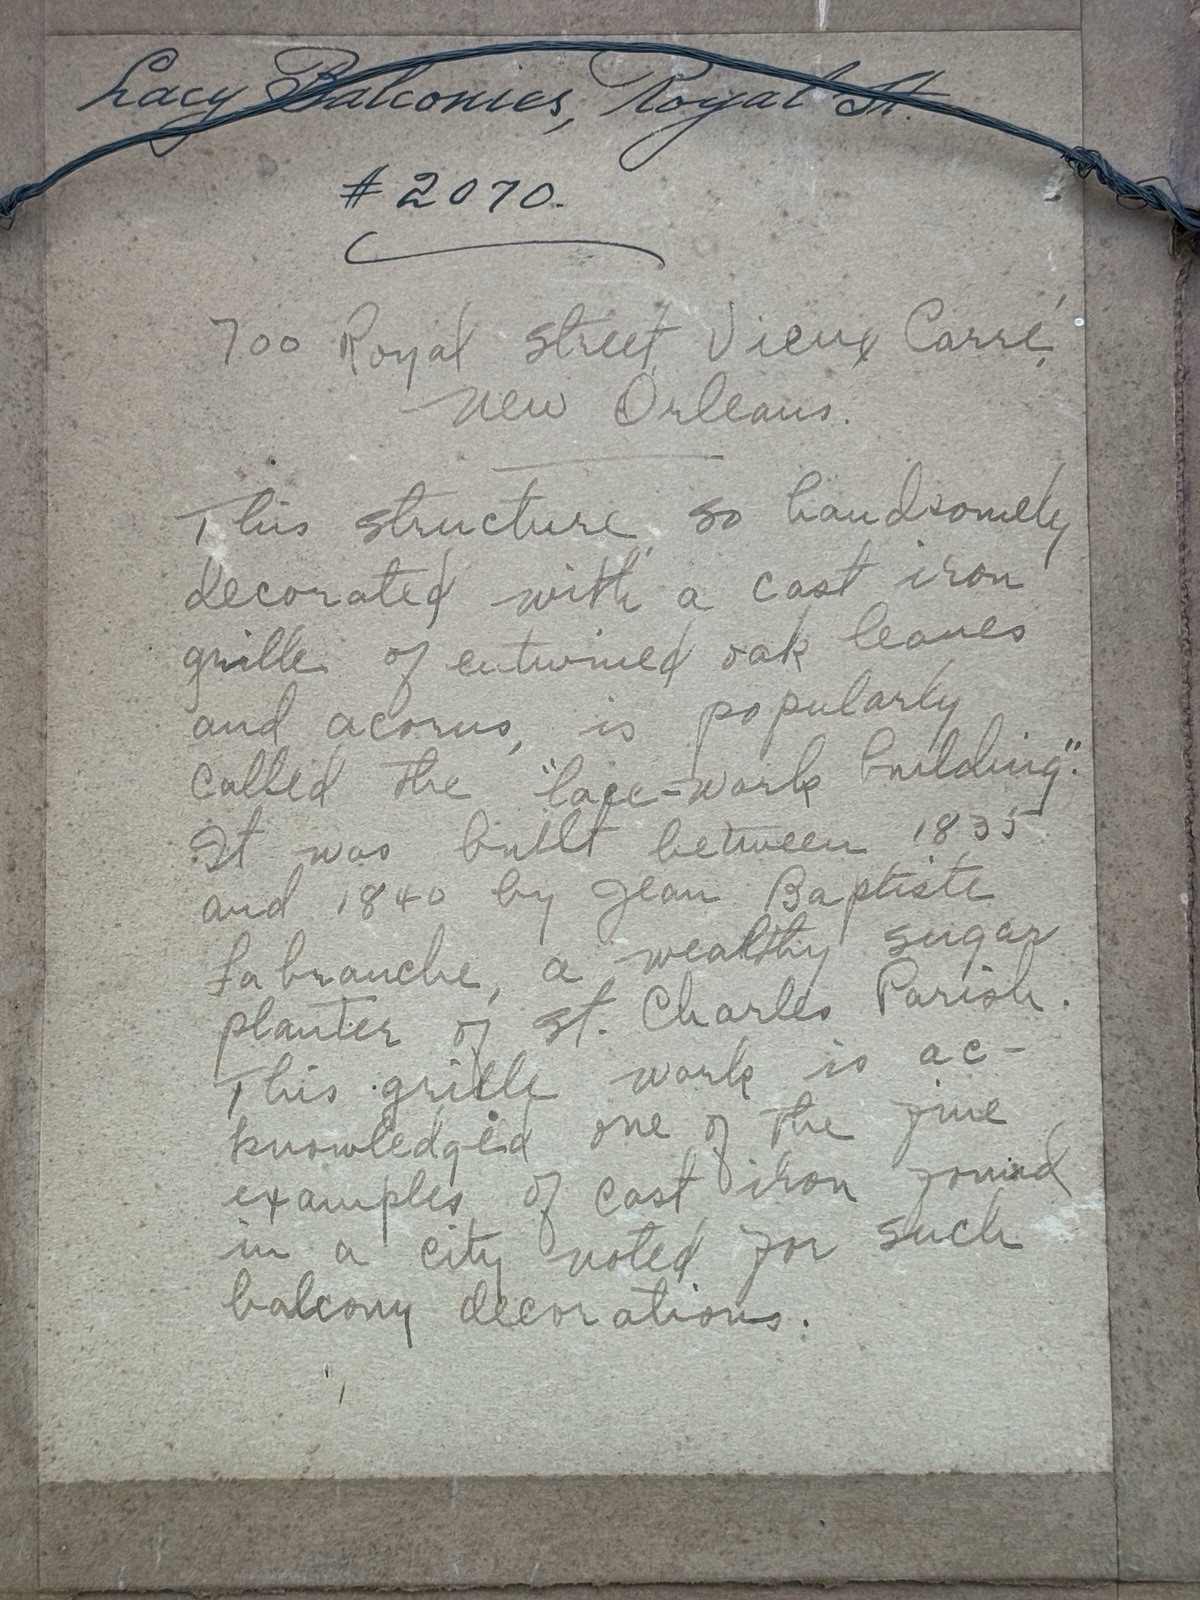 Lacy Balconies, Royal St.
#2070.
700 Royal Street, Vieux Carré,
New Orleans.
This structure, so handsomely
decorated with a cast iron
grille of entwined oak leaves
and acorns, is popularly
called the "lace-work building".
It was built between 1835
and 1840 by Jean Baptiste
Labranche, a wealthy sugar
planter of St. Charles Parish.
This grille work is ac-
knowledged one of the fine
examples of cast iron found
in a city noted for such
balcony decorations.